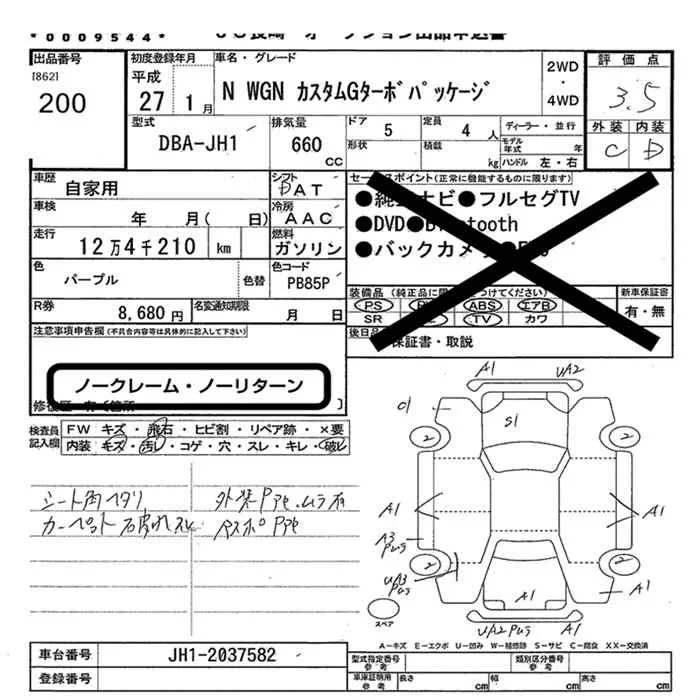 *0009544*
JU長崎 オークション出品申込書
出品番号
[862]
200
初度登録年月
平成
27 1月
車名・グレード
N WGN カスタムGターボパッケージ
2WD
・
4WD
評価点
3.5
外装 内装
C D
型式
DBA-JH1
排気量
660
CC
ドア
5
定員
4 人
形状
積載
kg
ディーラー・並行
モデル年式 年
ハンドル 左・右
車歴
自家用
シフト
DAT
車検
年 月( 日)
冷房
AAC
走行
12万4千210 km
燃料
ガソリン
色
パープル
色替
色コード
PB85P
R券
8,680円
名変通知期限
月 日
セールスポイント(正常に機能するものに限ります)
●純正ナビ●フルセグTV
●DVD●Bluetooth
●バックカメラ
装備品
PS ABS エアB
SR TV カワ
新車保証書
有・無
後日品
保証書・取説
注意事項申告欄(不具合内容等は具体的に記入して下さい)
ノークレーム・ノーリターン
修復歴 有 (箇所 )
検査員記入欄
FW キズ・飛石・ヒビ割・リペア跡・×要
内装 キズ・汚レ・コゲ・穴・スレ・キレ・破レ
シート角ヘタリ
外装Pアセ.ムラ有
カーペット
A1 UA2
S1
2 2
A1 A1
A3
UA3
2 2
A1 A1
UA2 A1
スペア
A-キズ E-エクボ U-凹み W-補修跡 S-サビ C-腐食 XX-交換済
車台番号
JH1-2037582
登録番号
型式指定番号
参考
類別区分番号
参考
車庫証明用
参考
長さ cm
幅 cm
高さ cm